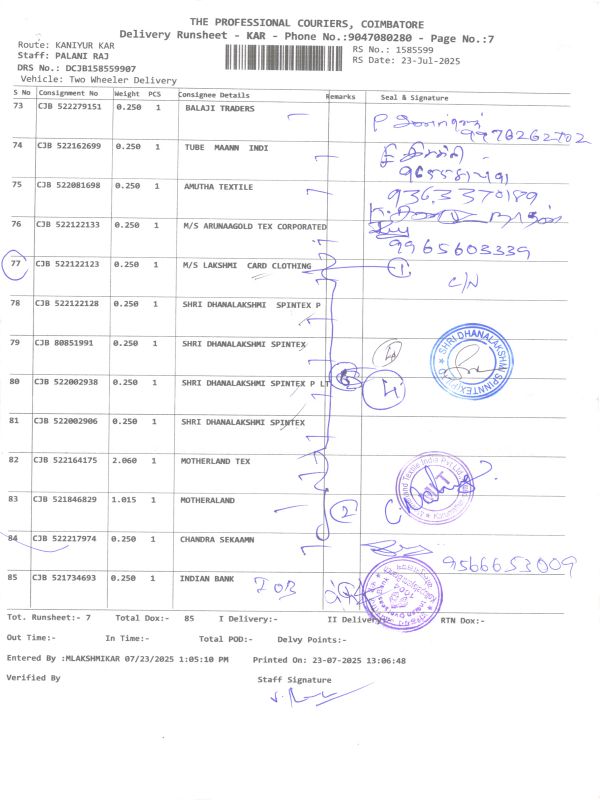 THE PROFESSIONAL COURIERS, COIMBATORE
Delivery Runsheet - KAR - Phone No.:9047080280 - Page No.:7
Route: KANIYUR KAR RS No.: 1585599
Staff: PALANI RAJ RS Date: 23-Jul-2025
DRS No.: DCJB158559907
Vehicle: Two Wheeler Delivery
S No Consignment No Weight PCS Consignee Details Remarks Seal & Signature
73 CJB 522279151 0.250 1 BALAJI TRADERS
9978262702
74 CJB 522162699 0.250 1 TUBE MAANN INDI
75 CJB 522081698 0.250 1 AMUTHA TEXTILE 9363370189
76 CJB 522122133 0.250 1 M/S ARUNAAGOLD TEX CORPORATED
9965603339
77 CJB 522122123 0.250 1 M/S LAKSHMI CARD CLOTHING 1
C/N
78 CJB 522122128 0.250 1 SHRI DHANALAKSHMI SPINTEX P
79 CJB 80851991 0.250 1 SHRI DHANALAKSHMI SPINTEX
SHRI DHANALAKSHMI SPINNTEX (P)
80 CJB 522002938 0.250 1 SHRI DHANALAKSHMI SPINTEX P LT
81 CJB 522002906 0.250 1 SHRI DHANALAKSHMI SPINTEX
82 CJB 522164175 2.060 1 MOTHERLAND TEX
83 CJB 521846829 1.015 1 MOTHERALAND 2
84 CJB 522217974 0.250 1 CHANDRA SEKAAMN
9566653009
85 CJB 521734693 0.250 1 INDIAN BANK IOB
Tot. Runsheet:- 7 Total Dox:- 85 I Delivery:- II Delivery:- RTN Dox:-
Out Time:- In Time:- Total POD:- Delvy Points:-
Entered By :MLAKSHMIKAR 07/23/2025 1:05:10 PM Printed On: 23-07-2025 13:06:48
Verified By Staff Signature